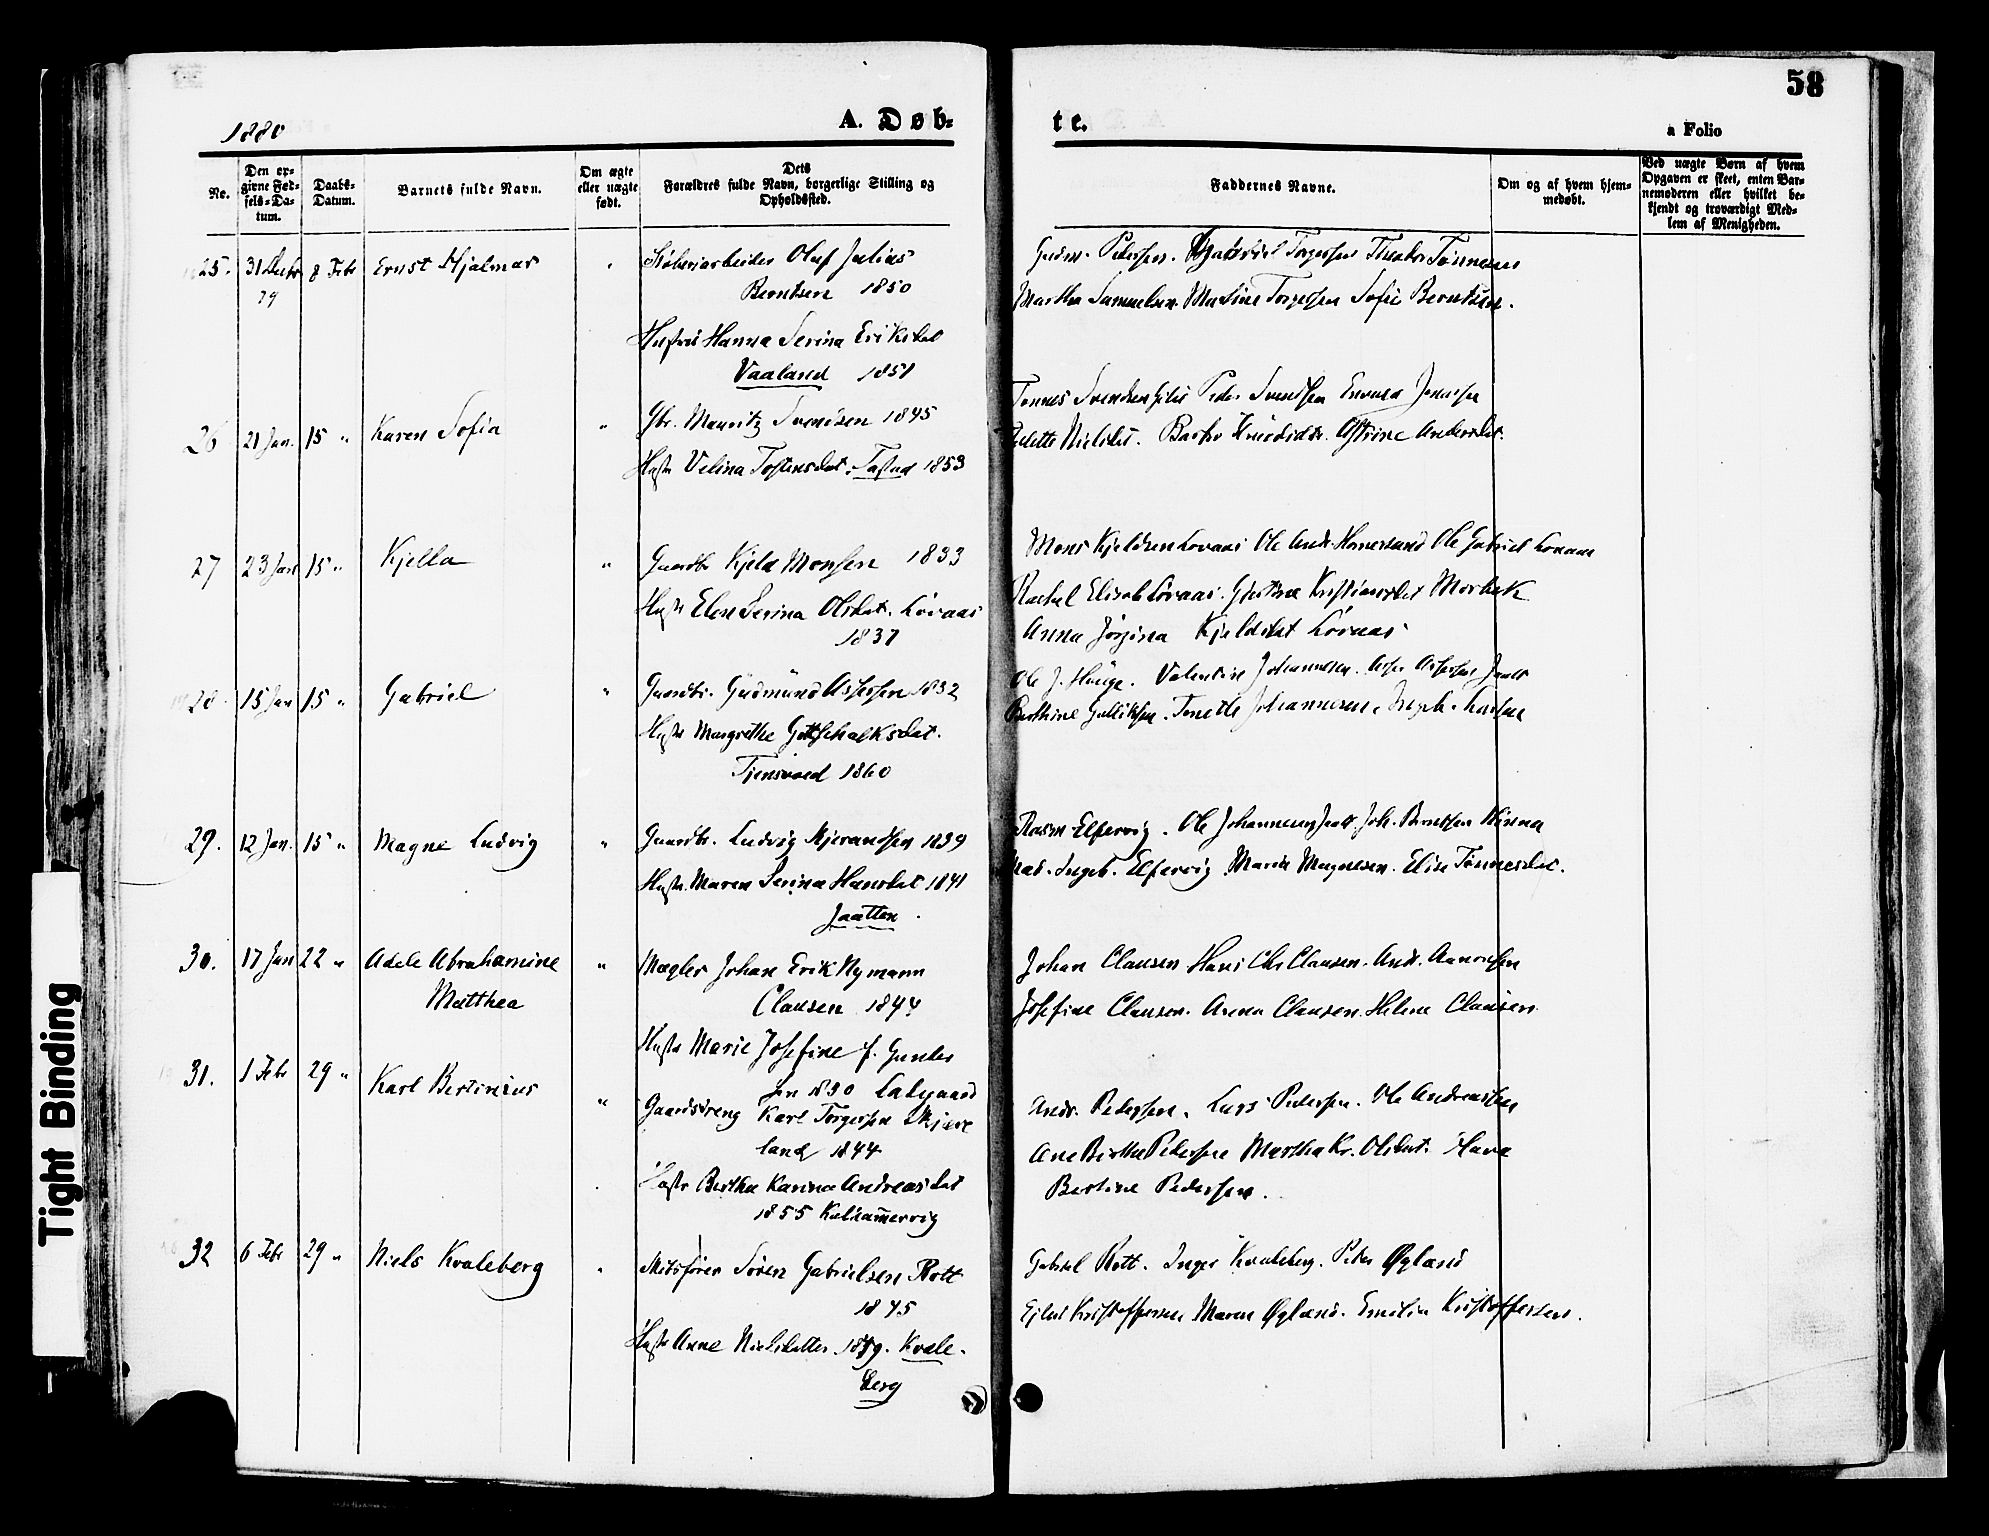 58
1880
A. Døb-
te.
a Folio
No.
Den op-
givne Fød-
sels-Da-
tum.
Daabs-
Datum.
Barnets fulde Navn.
Om ægte
eller uægte
født.
Dets
Forældres fulde Navn, borgerlige Stilling og
Opholdssted.
Faddernes Navne.
Om og af hvem hjem-
medøbt.
Ved uægte Børn af hvem
Opgaven er skeet, enten Bar-
nemoderen eller hvilket be-
kjendt og troværdigt Med-
lem af Menigheden.
25. 31 Debr 8 Febr Ernst Hjalmar " Oluf Julius
79
Berntsen 1850
Hustru Hanna Serina Eriksdat
Vaaland 1851
Pedersen. Gabriel Torgersen Theodor Tønnesen
Martha Samuelsen. Martine Torgersen Sofie Berntsen.
26 21 Jan. 15 " Karen Sofia " Gbr. Mauritz Svendsen 1845
Hustr Velina Tostensdat. Tasta 1853
Tønnes Svendsen Peder Svendsen
Nielsdt. Andersdat.
27 23 Jan 15 " Kjella " Gaardbr Kjeld Monsen 1833
Hustr Elen Serina Olsdat. Lovaas
1837
Mons Kjeldsen Lovaas Ole Andr. Ole Gabriel Lovaas
Rachel Elisab Lovaas.
Anna Jörgina Kjeldsdat Lovaas
28. 15 Jan 15 " Gabriel " Gaardbr. Gudmund Assersen 1832
Hustr Margrethe Gottschalksdat.
Tjensvold 1860
Ole J. Hauge. Valentin Johannesen. Asser Assersen Jaatt
Berthine Gulliksen. Tonette Johannesen. Ingeb. Larsen
29. 12 Jan. 15 " Magne Ludvig " Gaardbr. Ludvig Mjerandsen 1839
Hustr. Maren Serina Hansdat 1841
Jaatten.
Rasm Elfervig. Ole Johannesen Jaatt Joh. Berntsen Hinna
Mad. Ingeb. Elfervig Maria Magnesen. Elise Tönnesdat.
30. 17 Jan 22 " Adele Abrahamine " Mægler Johan Erik Nymann
Matthea
Clausen 1844
Hustr Marie Josefine f. Gunder
sen 1830 Ladegaard
Johan Clausen Hans Chr Clausen. Andr. Aanonsen
Josefine Clausen. Anna Clausen. Helene Clausen.
31. 1 Febr 29 " Karl Bertinius " Gaardsdreng Karl Torgersen Skjæve
land 1844
Hustr Bertha Karina Andreasdat
1855 Kalhammervig
Andr. Pedersen. Lars Pedersen. Ole Andreassen
Ane Bertha Pedersen Martha Kr. Olsdat. Hana
Bertine Pedersen.
32 6 Febr 29 " Niels Kvaleberg " Skibsfører Søren Gabrielsen Rott
1845
Hustr Anne Nielsdatter. Kvale-
berg
Gabriel Rott. Inger Kvaleberg. Peder Øgland
Ejlert Kristoffersen Maren Øgland. Emilia Kristoffersen.
Tight Binding